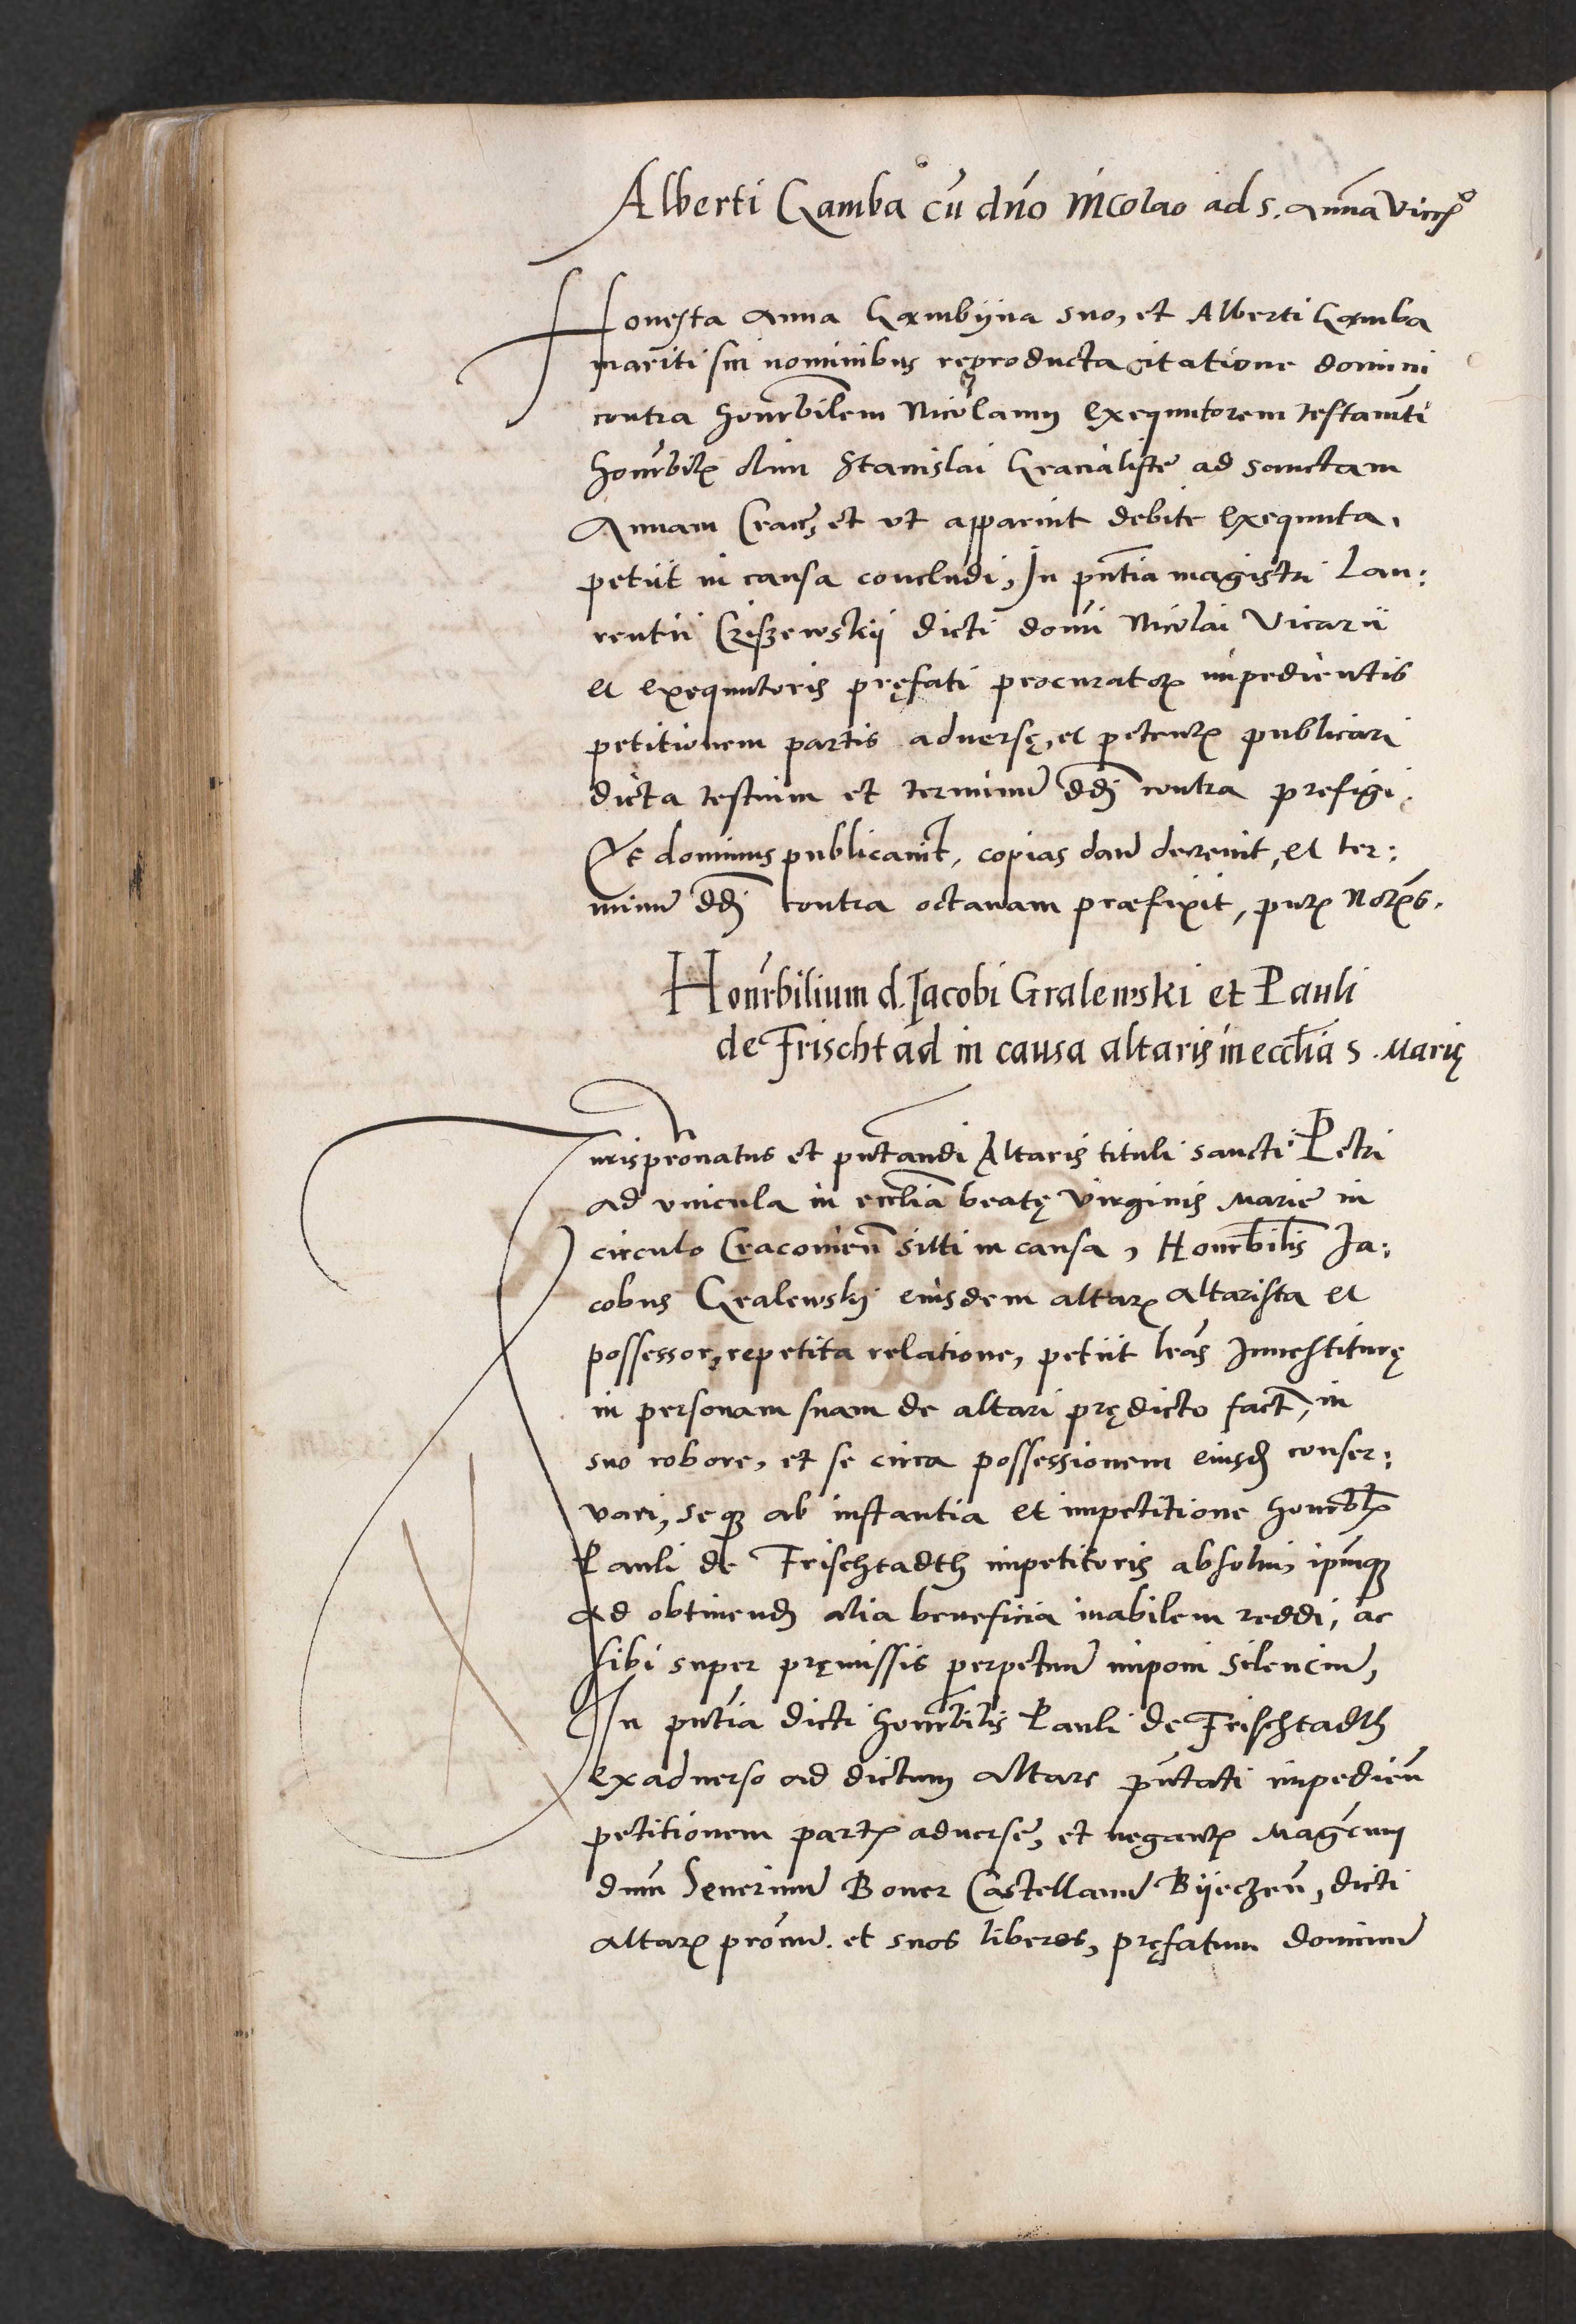 Alberti Gamba cū dn̄o Nicolao ad s. Annā
Honesta Anna Gambÿna suo, et Alberti Gamba
mariti sui nominibus reproducta citatione domini
contra honōrbilem Nicolaum exequutorem testamt̄i
honōrbilꝭ olim Stanislai Gracialiste ad sanctam
Annam Cracꝭ, et vt apparuit debite exequuta,
petiit in causa concludi, In pn̄tia magistri Lau:
rentii Cziszewskij dicti domi Nicolai Vicarii
et exequutoris pręfati procuratorꝭ impedientis
petitionem partis aduersę, et petentꝭ publicari
dicta testium et terminū dd̄j contra prefigi.
Et dominus publicauit, copias dari decreuit, et ter:
minū dd̄j contra octauam praefixit, pn̄tꝭ Notꝭs.
Honōrbilium d. Jacobi Gralewski et Pauli
de Frischtad in causa altaris in eccl̄ia S. Marię
Jurispr̄onatus et pn̄tandi Altaris tituli sancti Petri
ad vincula in eccl̄ia beatę virginis Marie in
circulo Cracouien̄ siti in causa, Honōrbilis Ja:
cobus Gralewskj eiusdem altarꝭ altarista et
possessor, repetita relatione, petiit lr̄as Inuestiturę
in personam suam de altari prędicto fact̄, in
suo robore, et se circa possessionem eiusd̄ conser:
vari, seqꝫ ab instantia et impetitione honōrblꝭ
Pauli de Frischtadth impetitoris absolui, ip̄umqꝫ
ad obtinend̄ alia beneficia inabilem reddi, ac
sibi super pręmissis perpetuū imponi silenciū,
In pn̄tia dicti honōrbilis Pauli de Frischtadth
ex aduerso ad dictum altare pn̄tati impedien̄
petitionem partꝭ aduerse, et negantꝭ Maḡcum
dnm̄ Seuerinū Boner Castellanū Bÿeczen̄, dicti
altarꝭ pr̄onū et suos liberos, pręfatum dominū